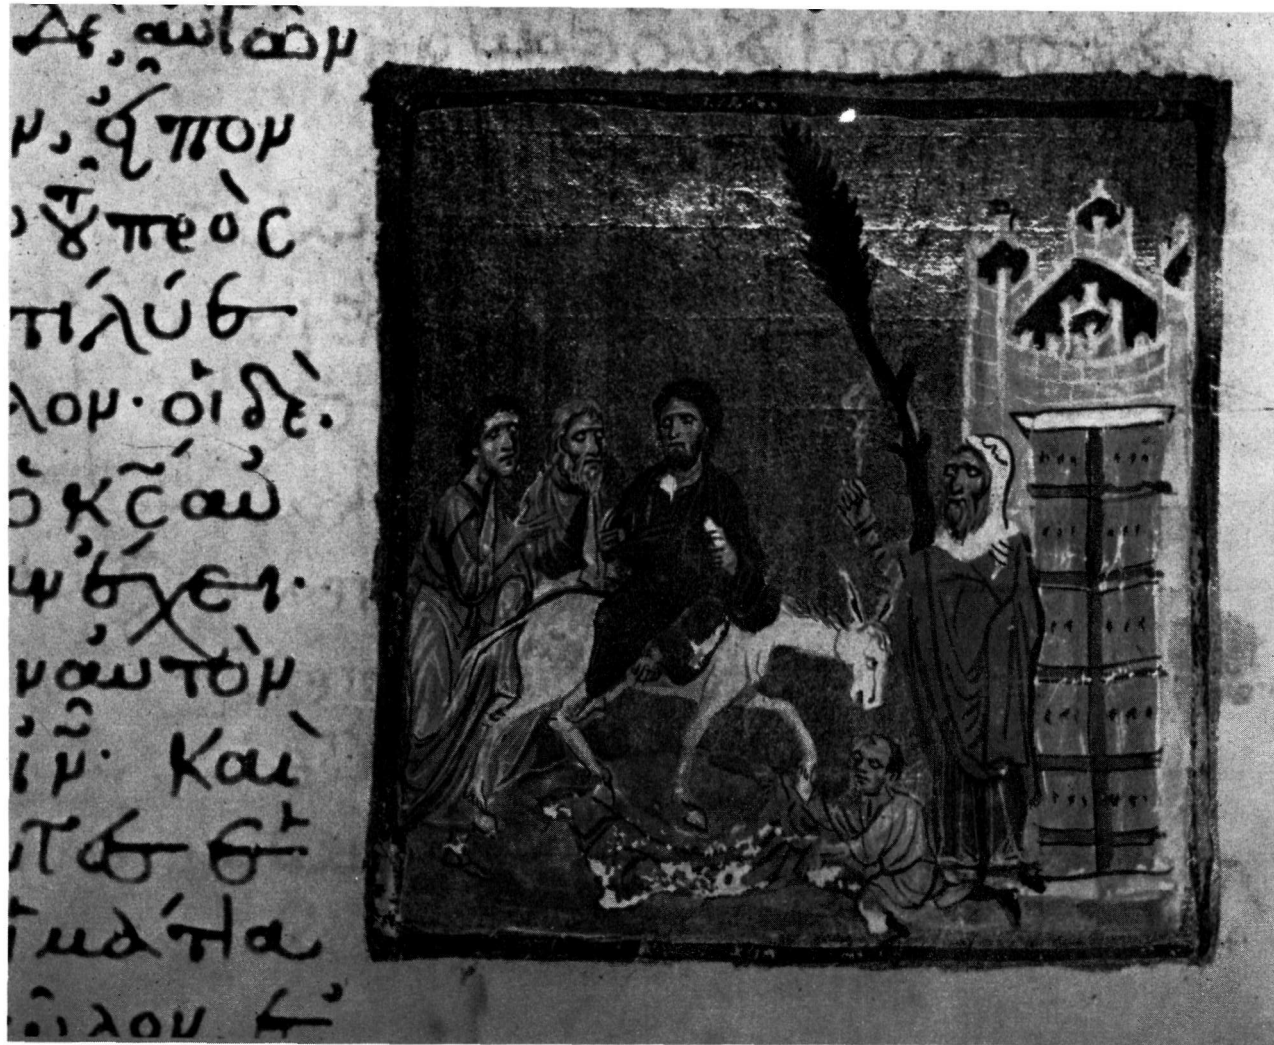 δὲ αὐτῶν
ν, εἶπον
οῦ πρὸς
τί λύε
λον· οἱ δὲ
ὁ κ̅ς̅ αὐ
ν ἔχει·
ν αὐτὸν
ι̅ν̅· καὶ
ντες ἑ
ἱμάτια
ῶλον ἐ